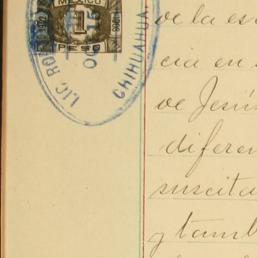 MEXICO
1
PESO
LIC. RO
OC 15
CHIHUAHUA.
de la es
cia en s
de Jesú
diferen
suscita
y tamb